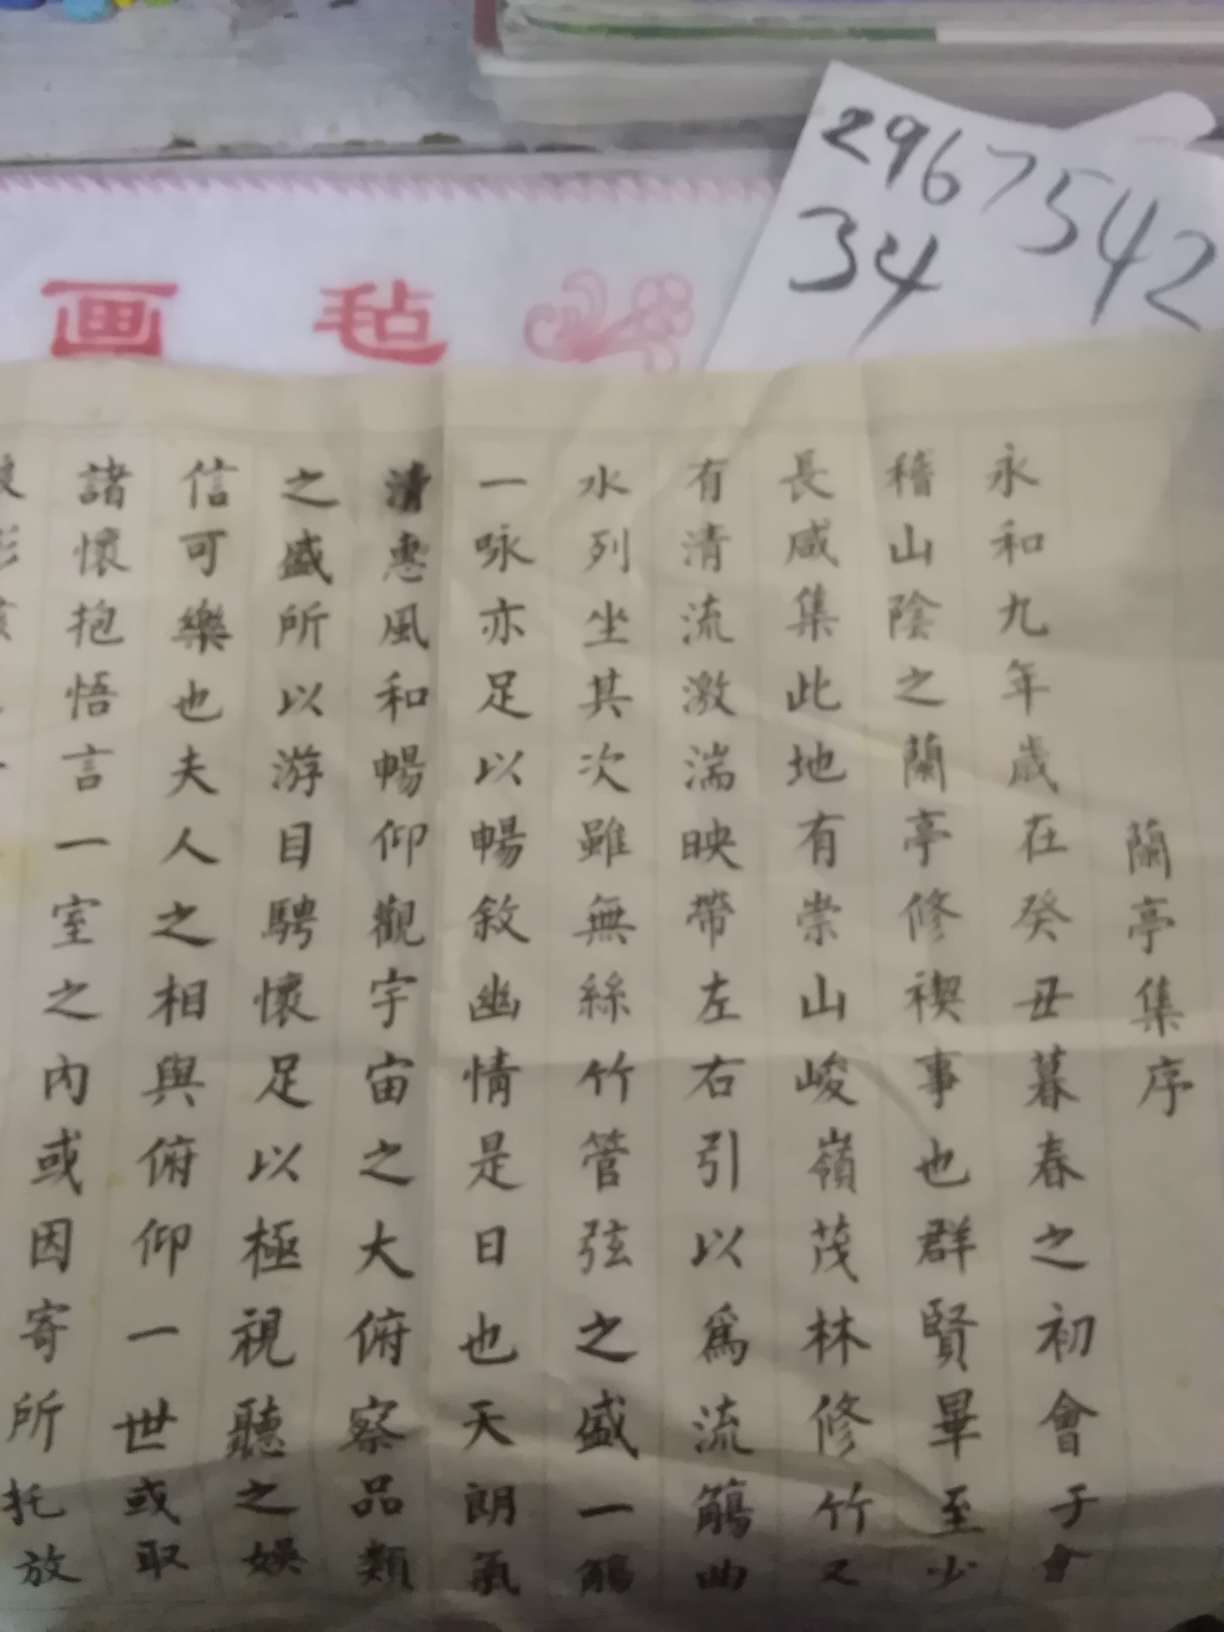 2967542
34
画毡
蘭亭集序
永和九年歲在癸丑暮春之初會于會
稽山陰之蘭亭修禊事也群賢畢至少
長咸集此地有崇山峻嶺茂林修竹又
有清流激湍映帶左右引以為流觴曲
水列坐其次雖無絲竹管弦之盛一觴
一咏亦足以暢敘幽情是日也天朗氣
清惠風和暢仰觀宇宙之大俯察品類
之盛所以游目騁懷足以極視聽之娛
信可樂也夫人之相與俯仰一世或取
諸懷抱悟言一室之內或因寄所托放